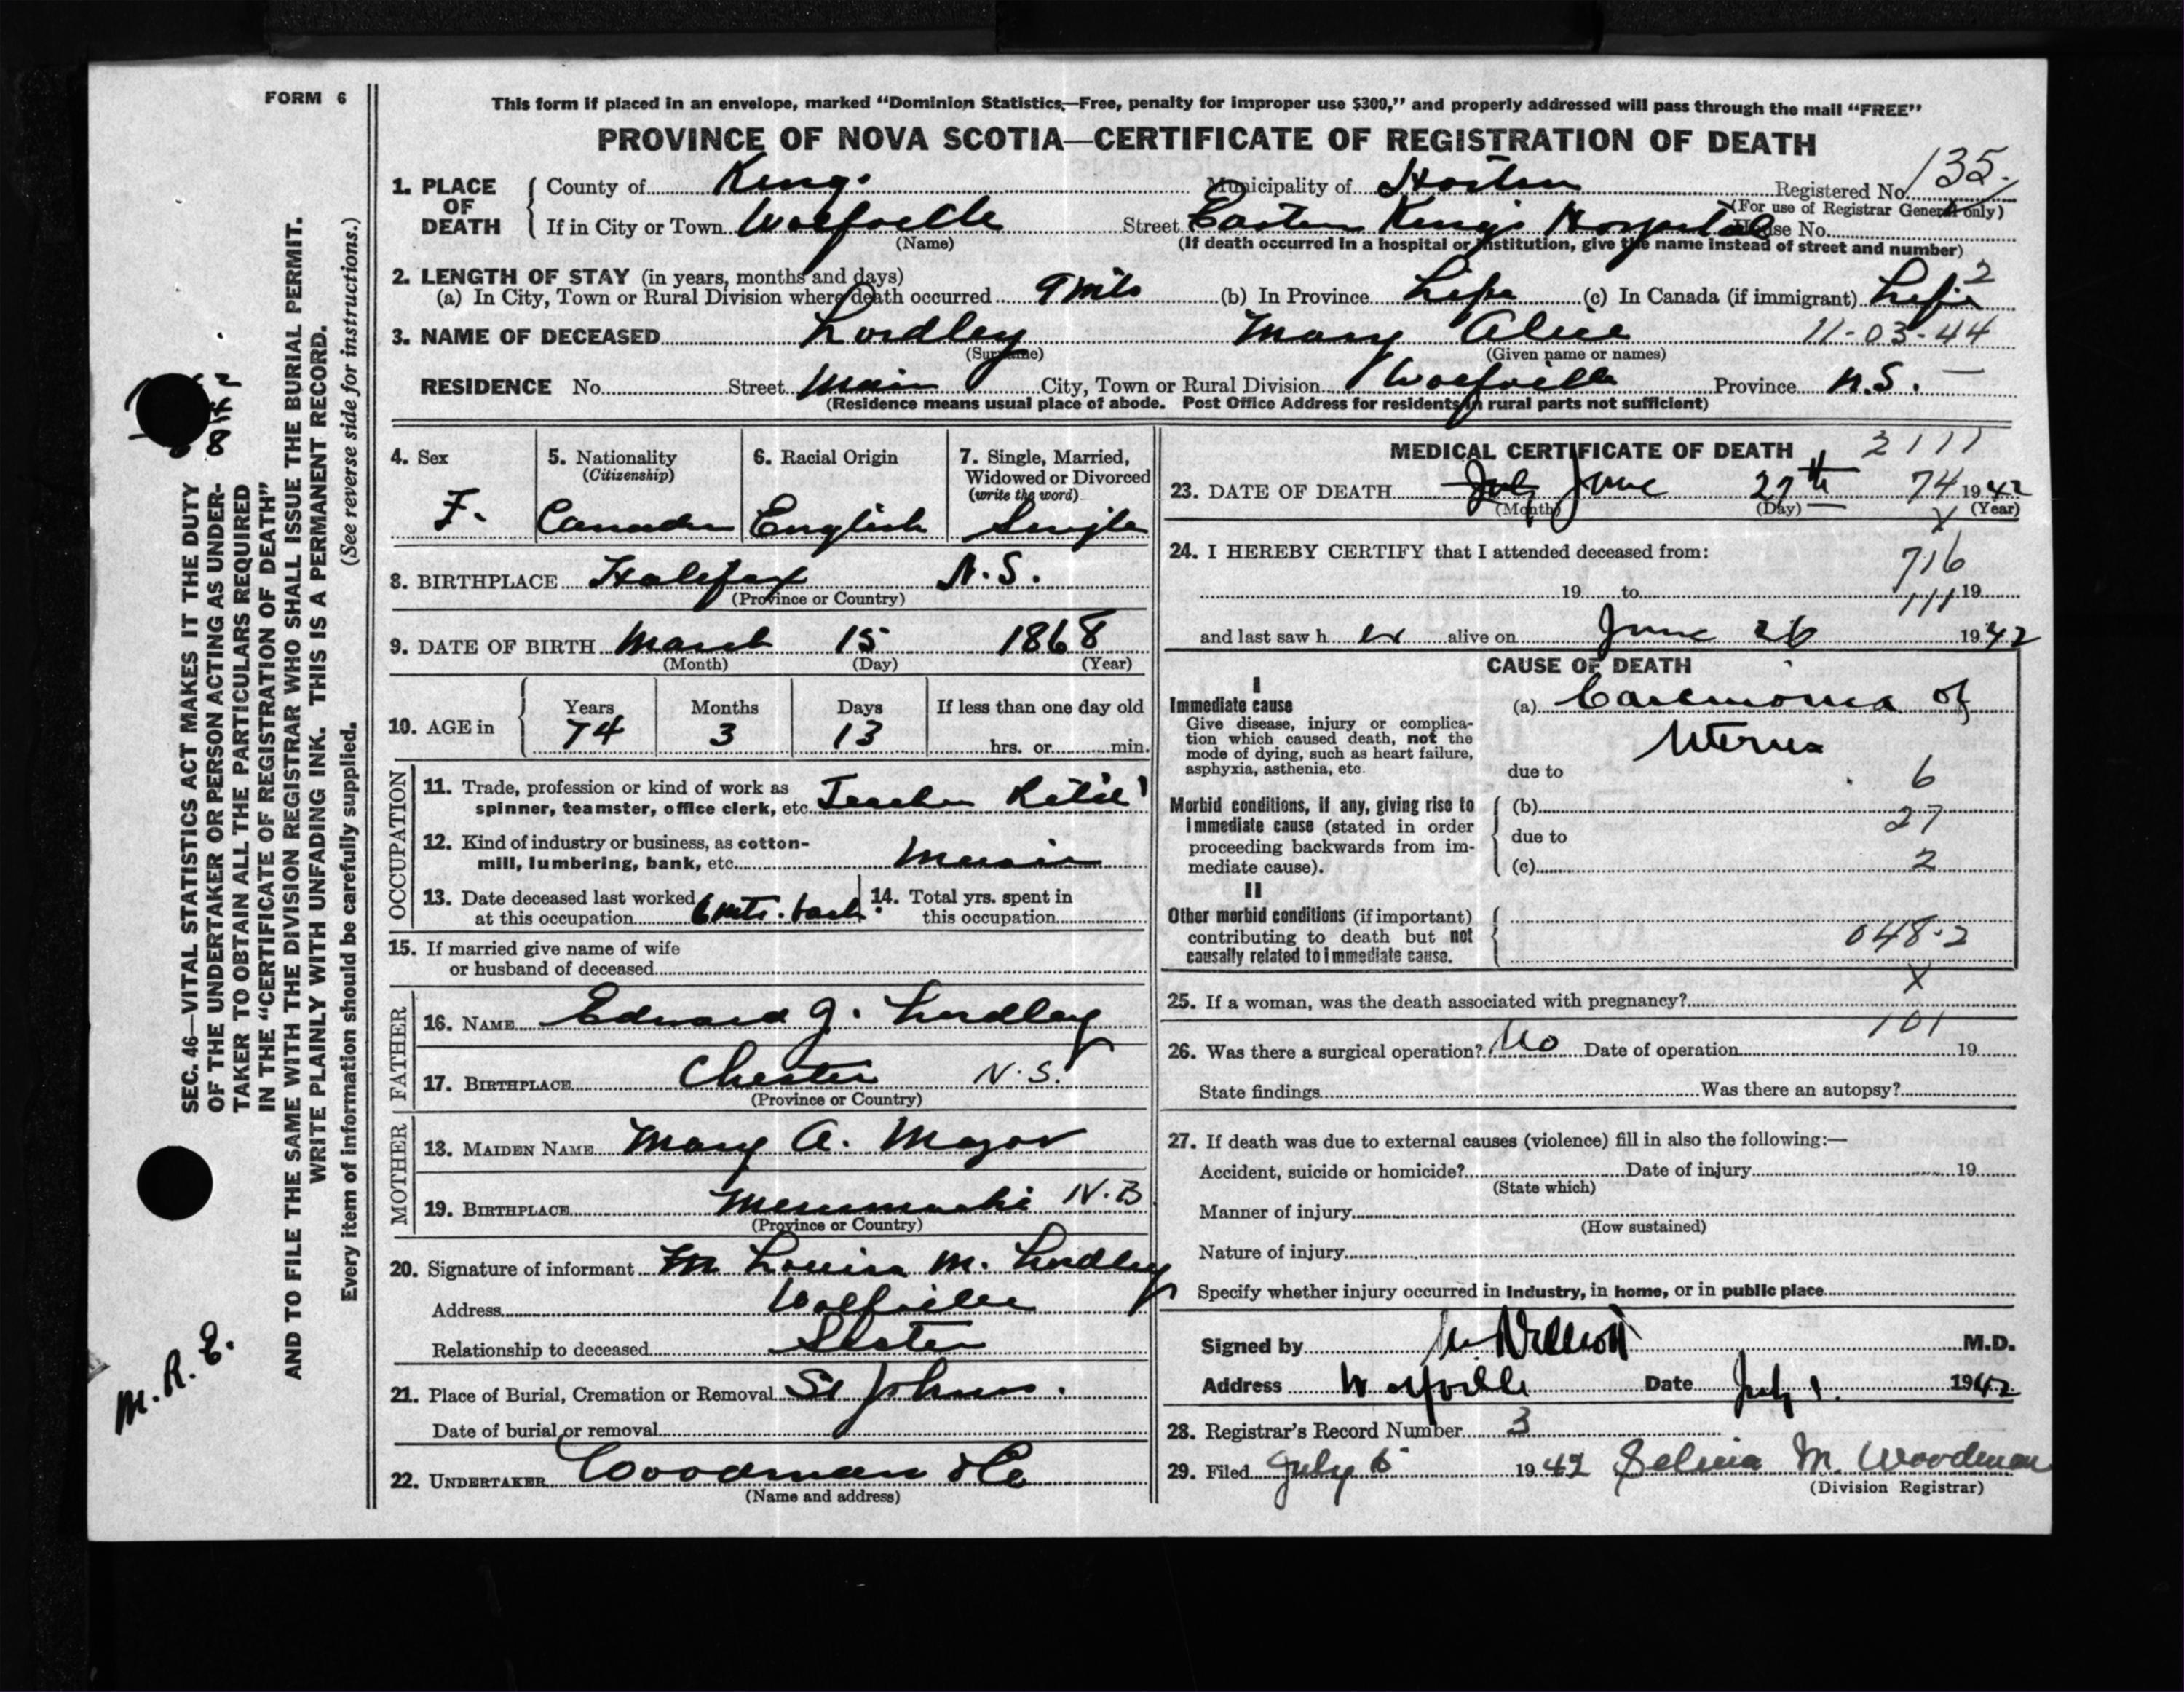 FORM 6
This form if placed in an envelope, marked “Dominion Statistics,—Free, penalty for improper use $300,” and properly addressed will pass through the mail “FREE”
PROVINCE OF NOVA SCOTIA—CERTIFICATE OF REGISTRATION OF DEATH
1. PLACE OF DEATH County of Kings Municipality of Horton Registered No. 135.
(For use of Registrar General only)
If in City or Town Wolfville Street Eastern Kings Hospital House No.
(Name) (If death occurred in a hospital or institution, give the name instead of street and number)
2. LENGTH OF STAY (in years, months and days)
(a) In City, Town or Rural Division where death occurred 9 mts (b) In Province Life (c) In Canada (if immigrant) Life 2
3. NAME OF DECEASED Lordley Mary Alice 11-03-44
(Surname) (Given name or names)
RESIDENCE No. Street Main City, Town or Rural Division Wolfville Province N.S. —
(Residence means usual place of abode. Post Office Address for residents in rural parts not sufficient)
4. Sex F.
5. Nationality (Citizenship) Canada
6. Racial Origin English
7. Single, Married, Widowed or Divorced (write the word) Single
8. BIRTHPLACE Halifax N.S.
(Province or Country)
9. DATE OF BIRTH March 15 1868
(Month) (Day) (Year)
10. AGE in Years 74 Months 3 Days 13 If less than one day old hrs. or min.
OCCUPATION
11. Trade, profession or kind of work as
spinner, teamster, office clerk, etc. Teacher Retir'
12. Kind of industry or business, as cotton-
mill, lumbering, bank, etc. Music
13. Date deceased last worked
at this occupation 6 mts. back.
14. Total yrs. spent in
this occupation
15. If married give name of wife
or husband of deceased
FATHER
16. NAME Edward J. Lordley
17. BIRTHPLACE Chester N.S.
(Province or Country)
MOTHER
18. MAIDEN NAME Mary A. Mazor
19. BIRTHPLACE N.B
(Province or Country)
20. Signature of informant M Louisa M. Lordley
Address Wolfville
Relationship to deceased Sister
21. Place of Burial, Cremation or Removal St Johns.
Date of burial or removal
22. UNDERTAKER Woodman & Co
(Name and address)
MEDICAL CERTIFICATE OF DEATH 2111
23. DATE OF DEATH July June 27th 74 1942
(Month) (Day) (Year)
X
24. I HEREBY CERTIFY that I attended deceased from: 716
19 to 111 19
and last saw her alive on June 26 1942
CAUSE OF DEATH
I
Immediate cause
Give disease, injury or complica-
tion which caused death, not the
mode of dying, such as heart failure,
asphyxia, asthenia, etc.
(a) Carcinoma of
Uterus
due to 6
Morbid conditions, if any, giving rise to
immediate cause (stated in order
proceeding backwards from im-
mediate cause).
(b)
due to 27
(c) 2
II
Other morbid conditions (if important)
contributing to death but not
causally related to immediate cause.
048.2
X
25. If a woman, was the death associated with pregnancy?
101
26. Was there a surgical operation? No Date of operation 19
State findings Was there an autopsy?
27. If death was due to external causes (violence) fill in also the following:—
Accident, suicide or homicide? Date of injury 19
(State which)
Manner of injury
(How sustained)
Nature of injury
Specify whether injury occurred in Industry, in home, or in public place
Signed by M.D.
Address Wolfville Date July 1. 1942
28. Registrar's Record Number 3
29. Filed July 6 1942 Selina M. Woodman
(Division Registrar)
SEC. 46—VITAL STATISTICS ACT MAKES IT THE DUTY
OF THE UNDERTAKER OR PERSON ACTING AS UNDER-
TAKER TO OBTAIN ALL THE PARTICULARS REQUIRED
IN THE “CERTIFICATE OF REGISTRATION OF DEATH”
AND TO FILE THE SAME WITH THE DIVISION REGISTRAR WHO SHALL ISSUE THE BURIAL PERMIT.
WRITE PLAINLY WITH UNFADING INK. THIS IS A PERMANENT RECORD.
Every item of information should be carefully supplied. (See reverse side for instructions.)
M.R.E.